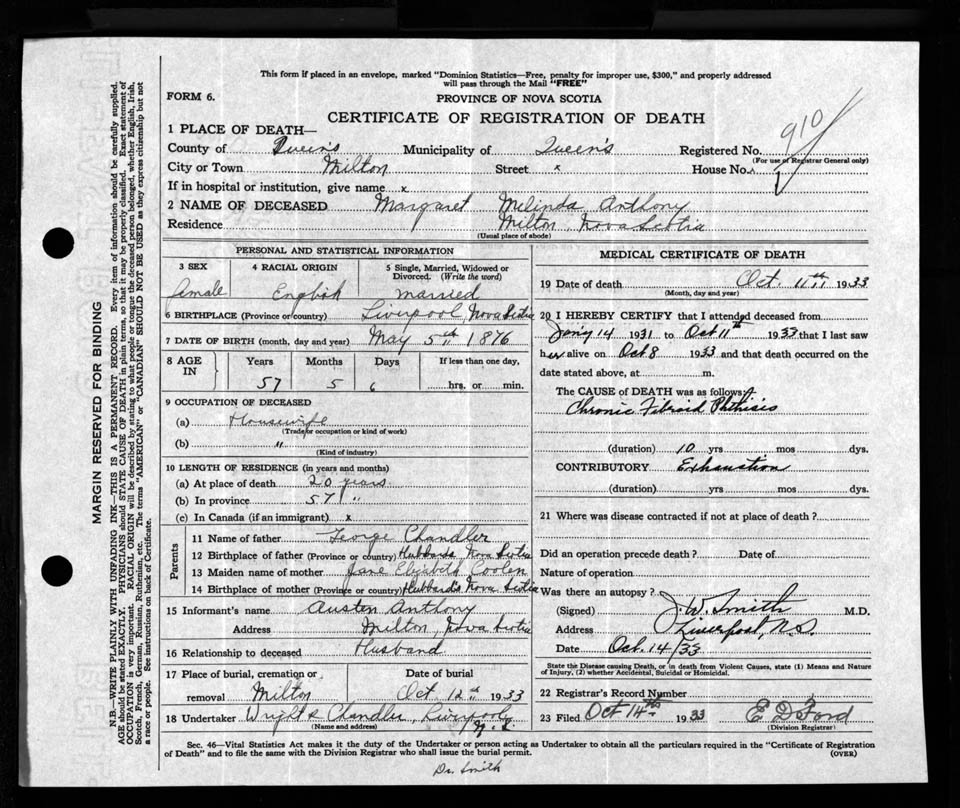 This form if placed in an envelope, marked "Dominion Statistics—Free, penalty for improper use, $300," and properly addressed
will pass through the Mail "FREE"
FORM 6.
PROVINCE OF NOVA SCOTIA
CERTIFICATE OF REGISTRATION OF DEATH
910
1 PLACE OF DEATH—
County of Queens Municipality of Queen's Registered No.
(For use of Registrar General only)
City or Town Milton Street x House No. x
If in hospital or institution, give name x
2 NAME OF DECEASED Margaret Melinda Anthony
Residence Milton, Nova Scotia
(Usual place of abode)
PERSONAL AND STATISTICAL INFORMATION
3 SEX 4 RACIAL ORIGIN 5 Single, Married, Widowed or
Divorced. (Write the word)
female English married
6 BIRTHPLACE (Province or country) Liverpool, Nova Scotia
7 DATE OF BIRTH (month, day and year) May 5th 1876
8 AGE IN Years Months Days If less than one day,
57 5 6 hrs. or min.
9 OCCUPATION OF DECEASED
(a) Housewife
(Trade or occupation or kind of work)
(b) "
(Kind of industry)
10 LENGTH OF RESIDENCE (in years and months)
(a) At place of death 20 years
(b) In province 57 "
(c) In Canada (if an immigrant) x
Parents
11 Name of father George Chandler
12 Birthplace of father (Province or country) Hubbards, Nova Scotia
13 Maiden name of mother Jane Elizabeth Coolen
14 Birthplace of mother (Province or country) Hubbard's Nova Scotia
15 Informant's name Austen Anthony
Address Milton, Nova Scotia
16 Relationship to deceased Husband
17 Place of burial, cremation or Date of burial
removal Milton Oct 12th 1933
18 Undertaker Wright & Chandler, Liverpool
N.S.
(Name and address)
MEDICAL CERTIFICATE OF DEATH
19 Date of death Oct. 11th 1933
(Month, day and year)
20 I HEREBY CERTIFY that I attended deceased from
Jan'y 14 1931 to Oct 11th 1933 that I last saw
her alive on Oct 8 1933 and that death occurred on the
date stated above, at m.
The CAUSE of DEATH was as follows:
Chronic Fibroid Phthisis
(duration) 10 yrs mos dys.
CONTRIBUTORY Exhaustion
(duration) yrs mos dys.
21 Where was disease contracted if not at place of death?
Did an operation precede death? Date of
Nature of operation
Was there an autopsy?
(Signed) J. W. Smith M.D.
Address Liverpool, N.S.
Date Oct. 14/33
State the Disease causing Death, or in death from Violent Causes, state (1) Means and Nature
of Injury, (2) whether Accidental, Suicidal or Homicidal.
22 Registrar's Record Number
23 Filed Oct 14th 1933 E D Ford
(Division Registrar)
Sec. 46—Vital Statistics Act makes it the duty of the Undertaker or person acting as Undertaker to obtain all the particulars required in the "Certificate of Registration
of Death" and to file the same with the Division Registrar who shall issue the burial permit. (OVER)
Dr. Smith
MARGIN RESERVED FOR BINDING
N.B.—WRITE PLAINLY WITH UNFADING INK—THIS IS A PERMANENT RECORD. Every item of information should be carefully supplied.
AGE should be stated EXACTLY. PHYSICIANS should STATE CAUSE OF DEATH in plain terms, so that it may be properly classified. Exact statement of
OCCUPATION is very important. RACIAL ORIGIN will be described by stating to what people or tongue the deceased person belonged, whether English, Irish,
Scotch, French, German, Russian, Ruthenian, etc. The terms "AMERICAN" or "CANADIAN" SHOULD NOT BE USED as they express citizenship but not
a race or people. See instructions on back of Certificate.